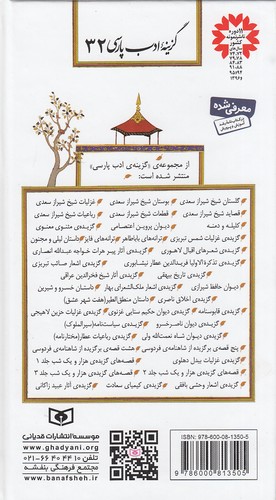 گزینهٔ ادب پارسی ۳۲
۱۱ دوره
ناشر نمونه
کشور
سال‌های
معرفی شده
از مجموعه‌ی «گزینه‌ی ادب پارسی»
منتشر شده است:
گلستان شیخ شیراز سعدی
بوستان شیخ شیراز سعدی
غزلیات شیخ شیراز سعدی
قصاید شیخ شیراز سعدی
هزلیات شیخ شیراز سعدی
رباعیات شیخ شیراز سعدی
کلیله و دمنه
دیوان پروین اعتصامی
گزیده‌ی مثنوی معنوی
گزیده‌ی غزلیات شمس تبریزی
ترانه‌های باباطاهر
ترانه‌های فایز
داستان لیلی و مجنون
گزیده‌ی شعرهای اقبال لاهوری
گزیده‌ی آثار پیر هرات خواجه عبدالله انصاری
گزیده‌ی تذکرة الاولیا فریدالدین عطار نیشابوری
گزیده‌ی اشعار صائب تبریزی
گزیده‌ی تاریخ بیهقی
گزیده‌ی آثار شیخ فخرالدین عراقی
دیوان حافظ شیرازی
گزیده‌ی اشعار ملک‌الشعرای بهار
داستان خسرو و شیرین
گزیده‌ی اخلاق ناصری
داستان منطق‌الطیر (هفت شهر عشق)
گزیده‌ی قابوسنامه
گزیده‌ی دیوان حکیم سنایی غزنوی
گزیده‌ی غزلیات حزین لاهیجی
گزیده‌ی دیوان ناصرخسرو
گزیده‌ی سیاست‌نامه (سیرالملوک)
گزیده‌ی دیوان شاه نعمت‌الله ولی
گزیده‌ی رباعیات عطار (مختارنامه)
پنج قصه‌ی برگزیده از شاهنامه‌ی فردوسی
هشت قصه‌ی برگزیده از شاهنامه‌ی فردوسی
گزیده‌ی غزلیات بیدل دهلوی
قصه‌های گزیده‌ی هزار و یک شب جلد ۱
قصه‌های گزیده‌ی هزار و یک شب جلد ۲
قصه‌های گزیده‌ی هزار و یک شب جلد ۳
گزیده‌ی اشعار وحشی بافقی
گزیده‌ی کیمیای سعادت
گزیده‌ی آثار عبید زاکانی
موسسه انتشارات قدیانی
www.ghadyani.org
تلفن ۱۰ ۴۴ ۴۰ ۶۶-۰۲۱
مجتمع فرهنگی بنفشه
www.banafsheh.ir
ISBN: 978-600-08-1350-5
9 786000 813505